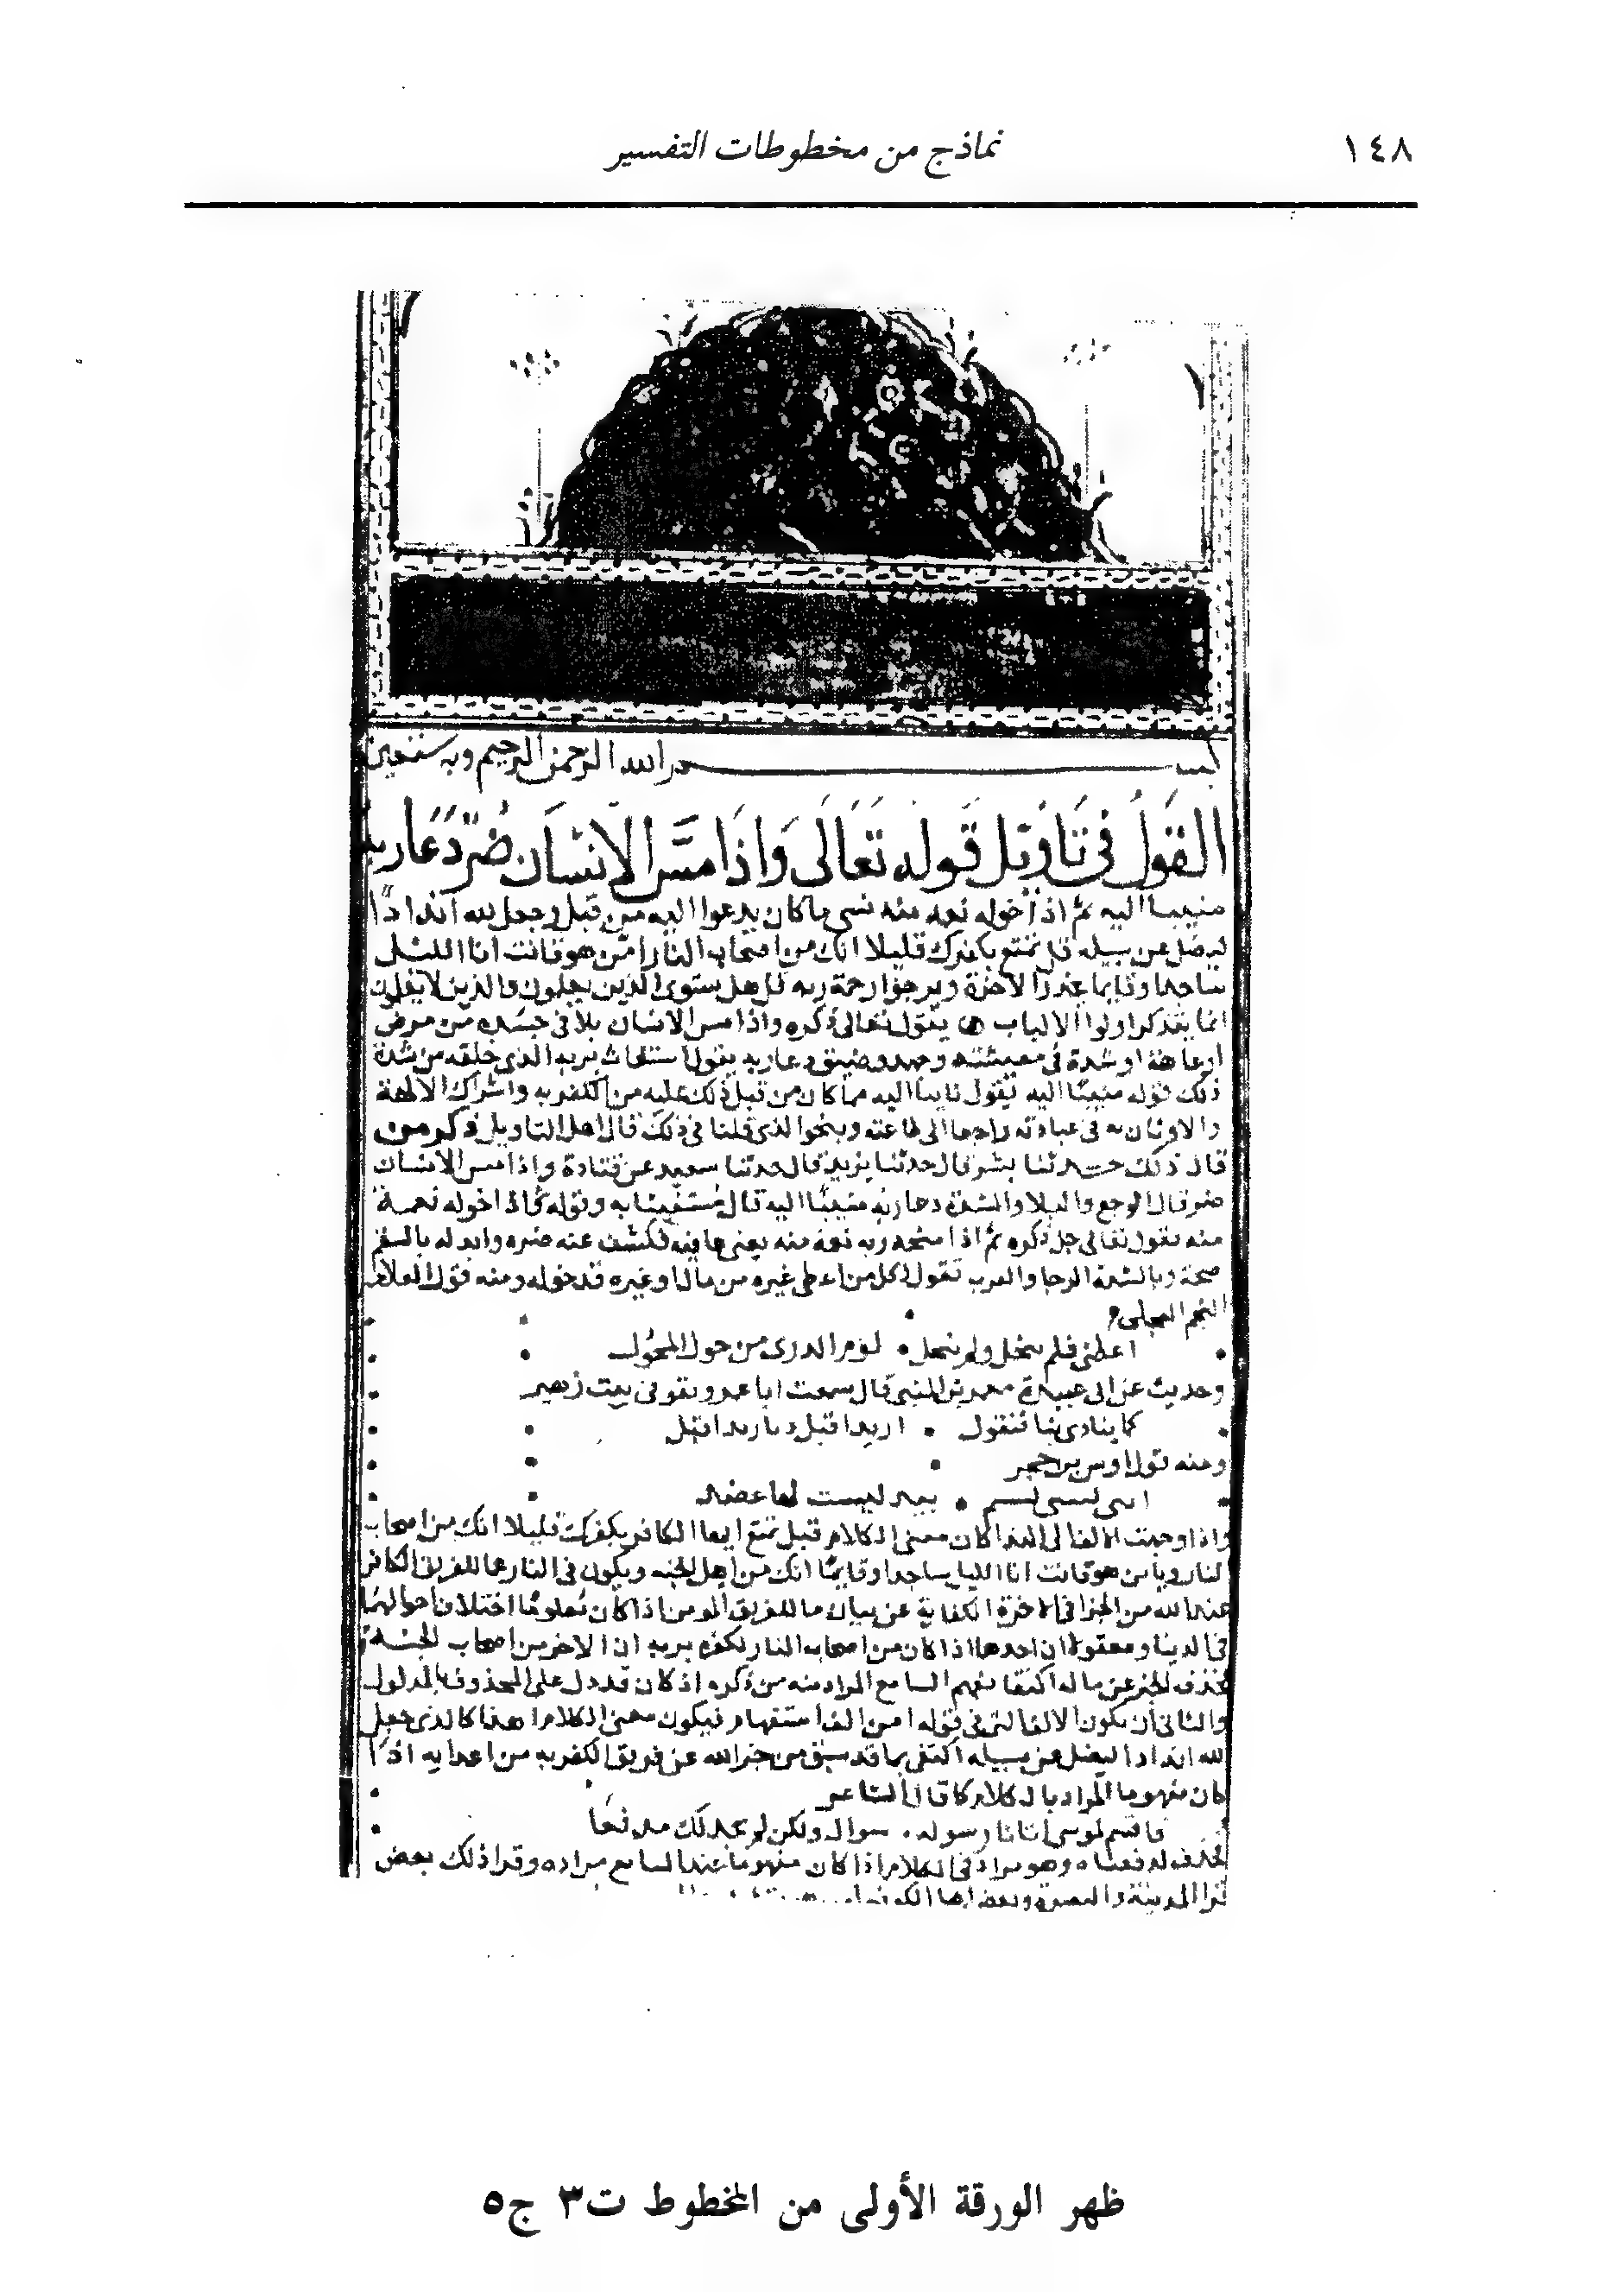 ١٤٨
نماذج من مخطوطات التفسير
بسم الله الرحمن الرحيم وبه نستعين
القول في تاويل قوله تعالى واذا مس الانسان ضر دعا ربه
منيبا اليه ثم اذا خوله نعمة منه نسي ما كان يدعوا اليه من قبل وجعل لله اندادا
ليضل عن سبيله قل تمتع بكفرك قليلا انك من اصحاب النار امن هو قانت انا الليل
ساجدا وقايما يحذر الاخرة ويرجوا رحمة ربه قل هل يستوي الذين يعلمون والذين لا يعلمون
انما يتذكر اولوا الالباب يقول تعالى ذكره واذا مس الانسان بلا في جسده من مرض
او عاهة او شدة في معيشته وجهد وضيق دعا ربه يقول استغاث بربه الذي خلقه من شدة
ذلك قوله منيبا اليه يقول تايبا اليه مما كان من قبل ذلك عليه من الكفر به واشراك الالهة
والاوثان به في عبادته راجعا الى طاعته وبنحو الذي قلنا في ذلك قال اهل التاويل ذكر من
قال ذلك حدثنا بشر قال حدثنا يزيد قال حدثنا سعيد عن قتادة واذا مس الانسان
ضر قال الوجع والبلا والشدة دعا ربه منيبا اليه قال مستغيثا به وقوله ثم اذا خوله نعمة
منه يقول تعالى جل ذكره ثم اذا منحه ربه نعمة منه يعني عافية فكشف عنه ضره وابدله بالسقم
صحة وبالشدة الرخا والعرب تقول لكل من اعطى غيره من مال او غيره قد خوله ومنه قول
النجم العجلي
اعطى فلم يبخل ولم يبخل • كوم الذرى من خول المخول
وحديث عن ابي عبيدة معمر بن المثنى قال سمعت ابا عمرو يقو في بيت زهير
ومنه قول اوس بن حجر
بيد ليست لها عضد
واذا وجهت الالف الى الندا كان معنى الكلام قيل تمتع ايها الكافر بكفرك قليلا انك من اصحاب
النار ويا من هو قانت انا الليل ساجدا وقايما انك من اهل الجنة ويكون في النار عما للفريق الكافر
عند الله من الجزا في الاخرة الكفاية عن بيان ما للفريق المومن اذا كان معلوما اختلاف احوالهما
في الدنيا ومعقولا ان احدهما اذا كان من اصحاب النار لكفره بربه ان الاخر من اصحاب الجنة
فحذف الخبر عن ما له اكتفا بفهم السامع المراد منه من ذكره اذ كان قد دل على المحذوف بالمدلول
والثاني ان يكون الالف التي في قوله امن الف استفهام فيكون معنى الكلام اهذا كالذي جعل
لله اندادا ليضل عن سبيله اكتفى بما قد سبق من خبر الله عن فريق الكفر به من اعدايه اذ
كان مفهوما المراد بالكلام كما قال الشاعر
فاقسم لو شي اتانا رسوله • سواك ولكن لم نجد لك مدفعا
فحذف لدفعناه وهو مراد في الكلام اذا كان مفهوما عند السامع مراده وقرا ذلك بعض
قرا المدينة والبصرة وبعض اهل الكوفة
ظهر الورقة الأولى من المخطوط ت٣ ج٥